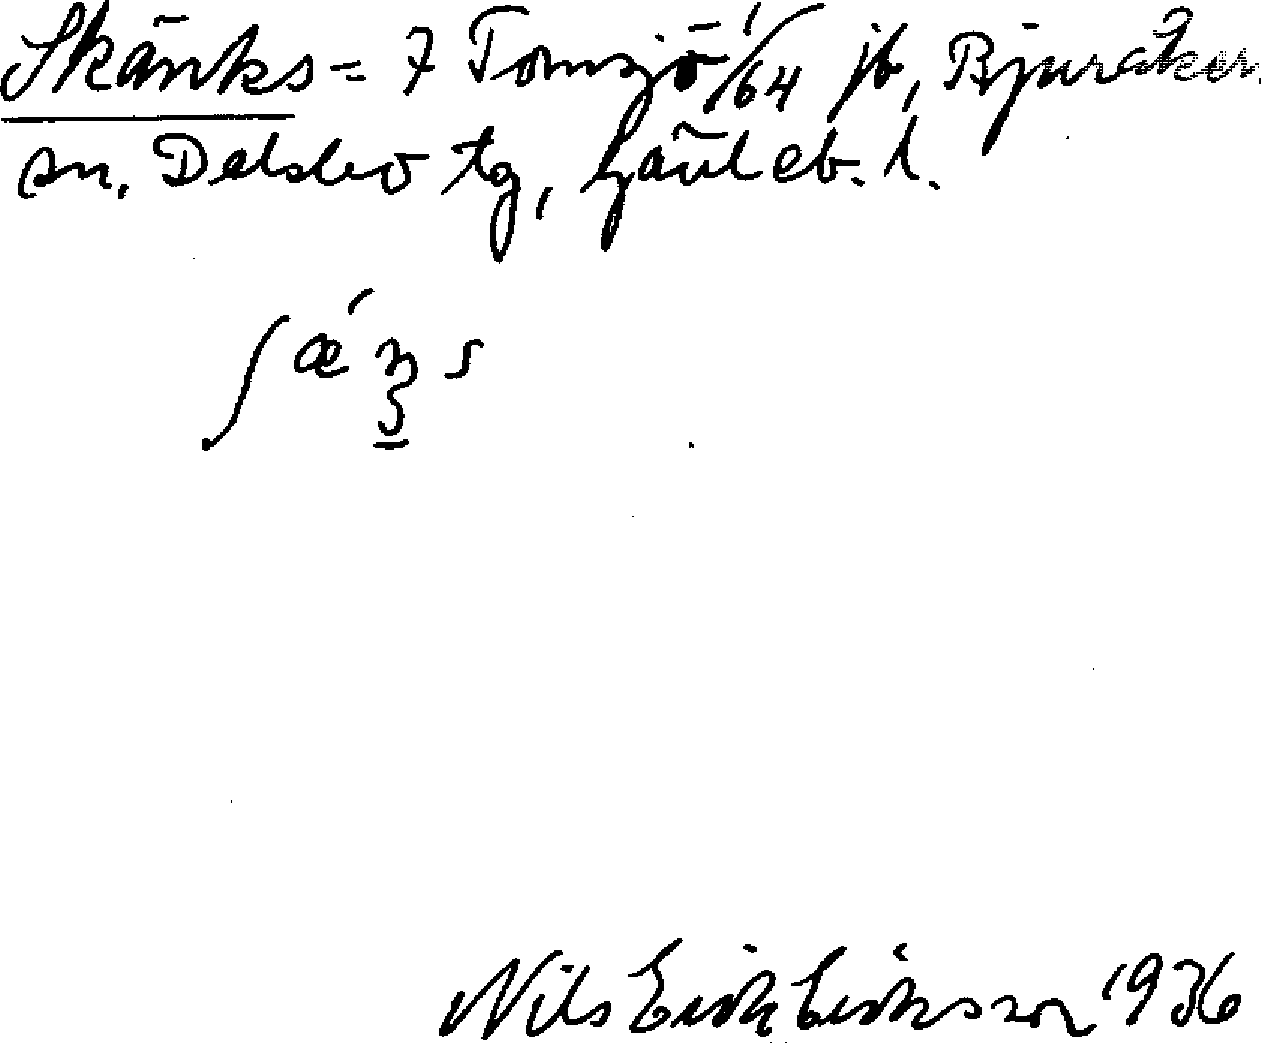 Skänks = 7 Tomsjö 1/64 jb, Bjuråker
sn. Delsbo tg, Gävleb. l.
Nils Erik Eriksson 1936